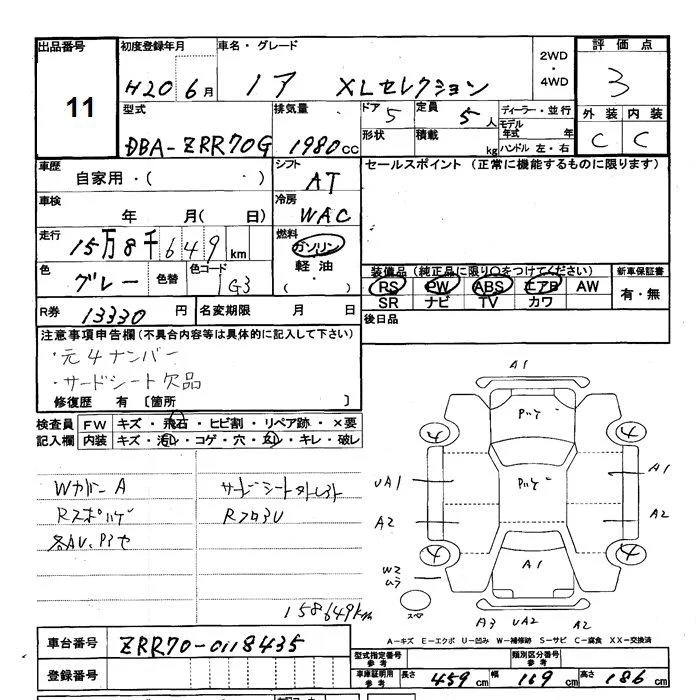 出品番号 初度登録年月 車名・グレード 2WD ・ 4WD 評価点
11 H20 6月 XLセレクション 3
型式 排気量 ドア 5 定員 5人 ディーラー・並行 外装 内装
モデル年式 年
DBA-ZRR70G 1980cc 形状 積載 kg ハンドル 左・右 C C
車歴 シフト セールスポイント (正常に機能するものに限ります)
自家用・( ) AT
車検 冷房
年 月( 日) WAC
走行 燃料
15万8千649km ガソリン
色 色替 色コード 軽油 装備品(純正品に限り○をつけてください) 新車保証書
グレー G3 ( ・ ) RS PW ABS エアB AW 有・無
SR ナビ TV カワ
R券 13330円 名変期限 月 日 後日品
注意事項申告欄(不具合内容等は具体的に記入して下さい)
・元4ナンバー
・サードシート欠品
修復歴 有 〔箇所 〕
検査員 FW キズ・飛石・ヒビ割・リペア跡・×要
記入欄 内装 キズ・汚れ・コゲ・穴・・キレ・破レ
A1
4 4
UA1 A1
A2 A2
4 4
W2 A1
A3 UA2 A2
WカバーA
158649km
A-キズ E-エクボ U-凹み W-補修跡 S-サビ C-腐食 XX-交換済
車台番号 ZRR70-0118435
型式指定番号 参考 類別区分番号 参考
登録番号 車庫証明用 参考 長さ 459cm 幅 169cm 高さ 186cm